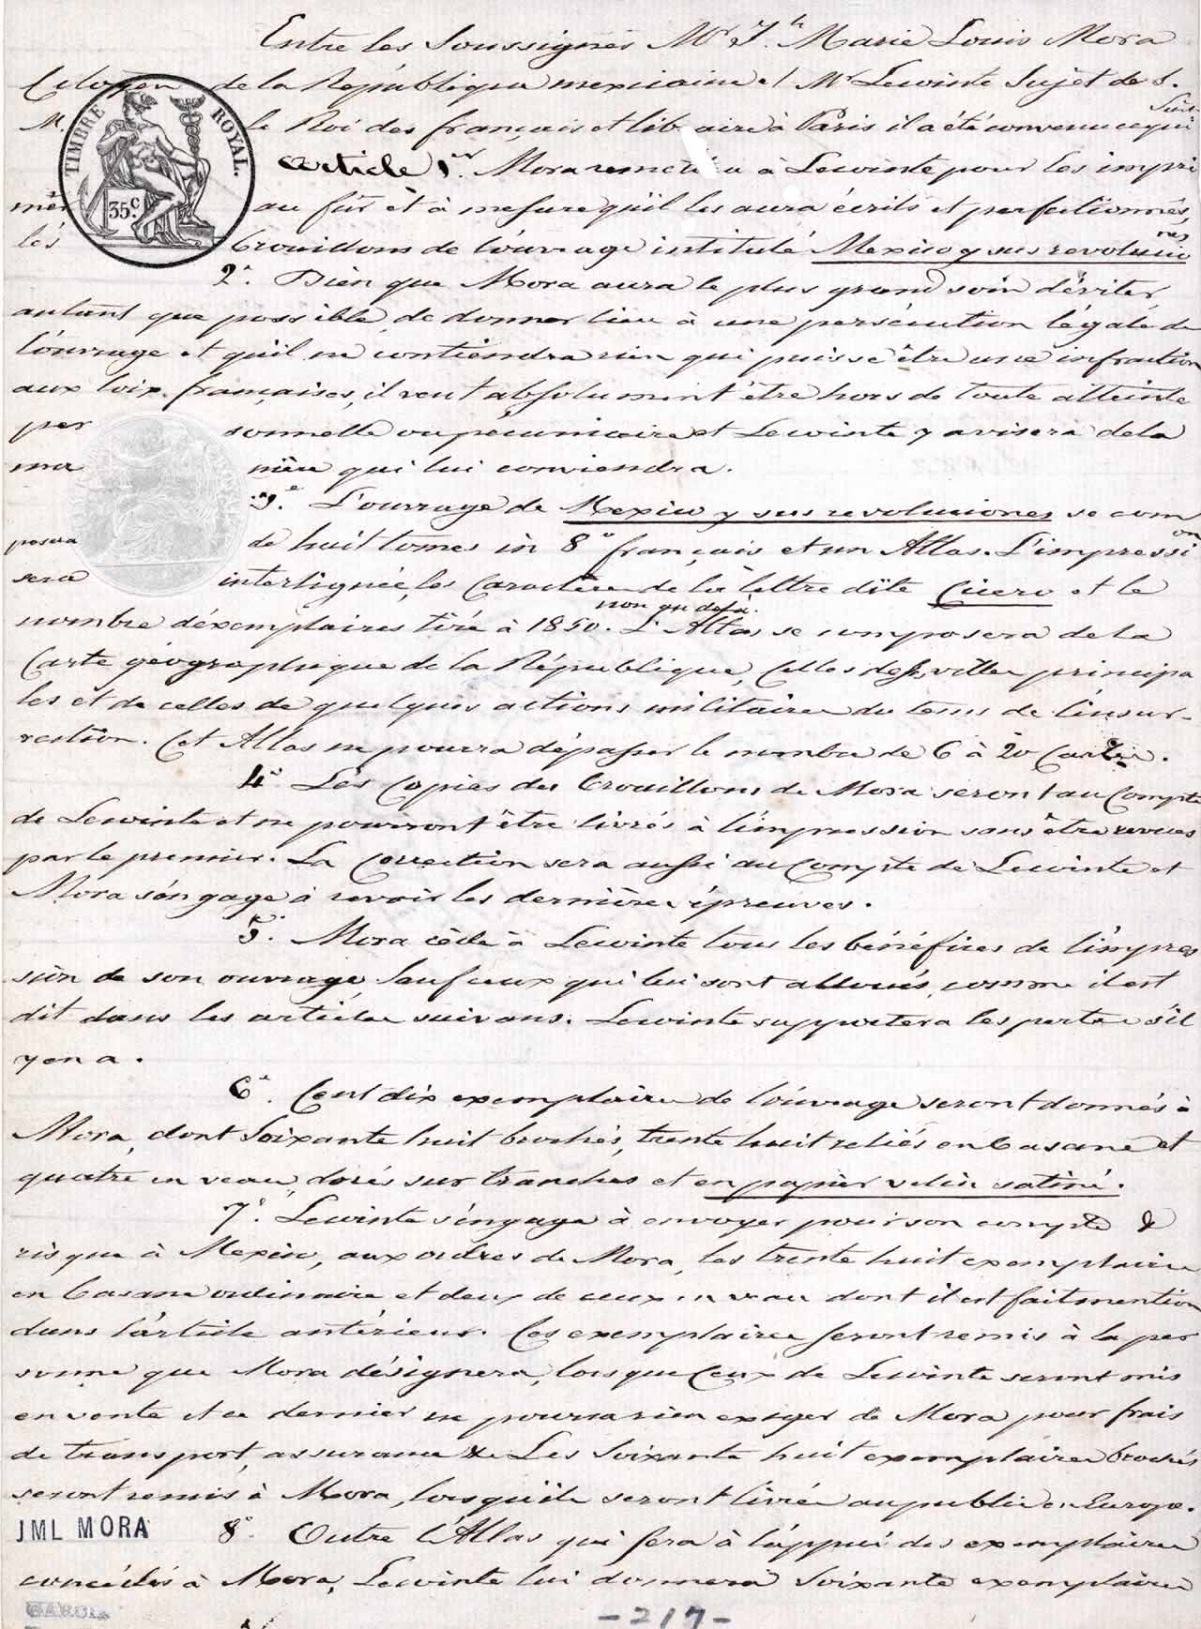 Entre les Soussignés Mr. Jh. Marie Louis Mora
Citoyen de la République mexicaine et Mr Lecointe Sujet de S.
M. le Roi des français et libraire à Paris il a été convenu ce qui Suit
TIMBRE ROYAL.
35c.
Article 1er. Mora remettra à Lecointe pour les impri
mer au fúr et à mesure qu'il les aura écrits et perfectionnés,
lés brouillons de l'óuvrage intitulé Mexico y sus revolucio nes
2°. Bien que Mora aura le plus grand soin d'éviter
autant que possible de donner lieu à une persécution légale de
l'óuvrage et qu'il ne contiendra rien qui puisse être une infraction
aux loix françaises, il veut absolument être hors de toute atteinte
per sonnelle ou pécuniaire et Lecointe y avisera de la
ma nière qui lui conviendra.
3e. L'ouvrage de Mexico y sus revoluciones se com
posera de huit tomes in 8° français et un Atlas. L'impressi on
sera interlignée, les Caractères de la lettre dite Cicero et le
nombre d'éxemplaires tiré à 1850. L'Atlas se composera de la
Carte géographique de la République, Celles des villes principa
les et de celles de quelques actions militaires du tems de l'insur-
rection. Cet Atlas ne pourra dépasser le nombre de 6 à 20 Cartes.
4° Lés Copies des brouillons de Mora seront au Compte
de Lecointe et ne pourront être livrés à l'impression sans être revues
par le premier. La Correction sera aussi au Compte de Lecointe et
Mora s'éngage à revoir les dernières épreuves.
5°. Mora cède à Lecointe tous les bénéfices de l'ímpres
sión de son ouvrage Sauf ceux qui lui sont alloués, comme il est
dit dans les articles suivans. Lecointe supportera les pertes s'il
y en a.
6°. Cent dix exemplaires de l'óuvrage seront donnés à
Mora, dont Soixante huit brochés, trente huit reliés en basane et
quatre en veau, dorés sur tranches et en papier velin satiné.
7°. Lecointe s'éngage à envoyer pour son compte &
risque à Mexico, aux ordres de Mora, les trente huit exemplaires
en basane ordinaire et deux de ceux en veau dont il est fait mention
dans l'article antérieur. Ces exemplaires seront remis à la per
sonne que Mora désignera, lorsque Ceux de Lecointe seront mis
en vente et ce dernier ne pourra rien exiger de Mora pour frais
de transport, assurance &c Les Soixante huit exemplaires brochés
seront remis à Mora, lorsqu'ils seront livrés au public en Europe.
JML MORA
8°. Outre l'Atlas qui sera à l'áppui des exemplaires
concédés à Mora, Lecointe lui donnera Soixante exemplaires
GARCIA
-217-